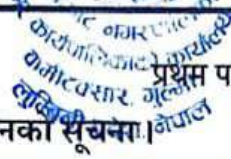 नगरपालिका
कार्यपालिकाको कार्यालय
वामीटक्सार, गुल्मी
लुम्बिनी नेपाल
प्रथम प
नको सूचना।